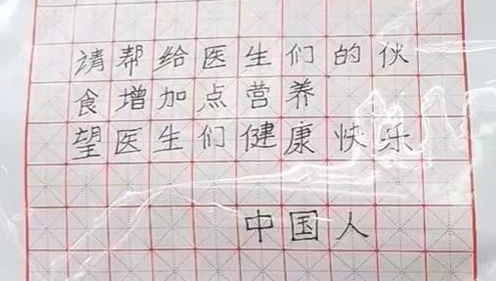 请帮给医生们的伙
食增加点营养
望医生们健康快乐
中国人